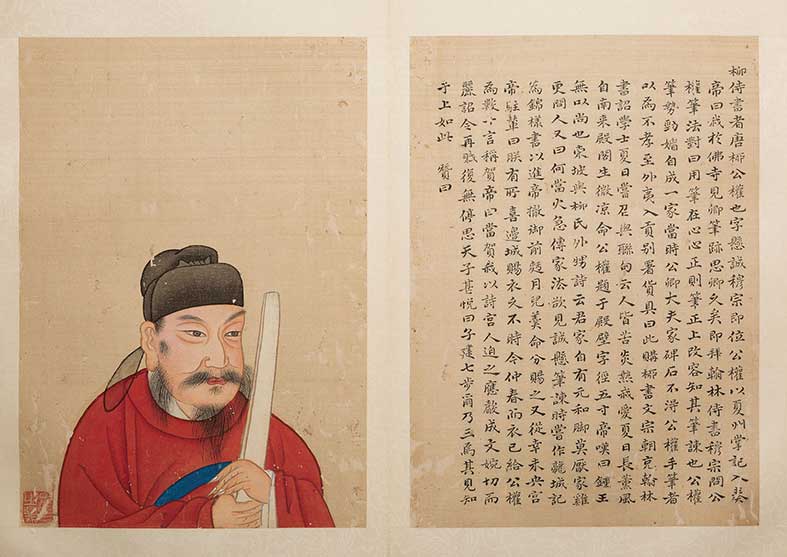 柳侍書者唐柳公權也字懸誠穆宗即位公權以夏州掌記入奏
帝曰我於佛寺見卿筆跡思卿久矣即拜翰林侍書穆宗問公
權筆法對曰用筆在心心正則筆正上改容知其筆諫也公權
筆勢勁媚自成一家當時公卿大夫家碑石不得公權手筆者
以為不孝至外夷入貢別署貨貝曰此購柳書文宗朝充翰林
書詔學士夏日嘗召與聯句云人皆苦炎熱我愛夏日長薰風
自南來殿閣生微涼命公權題于殿壁字徑五寸帝嘆曰鍾王
無以尚也東坡與柳氏外甥詩云君家自有元和脚莫厭家雞
更問人又曰何當火急傳家法欲見誠懸筆諫時嘗作龍城記
為錦樣書以進帝撤御前麫月兒羹命分賜之又從幸未央宮
帝駐輦曰朕有所喜邊城賜衣久不時今仲春而衣已給公權
為數十言稱賀帝曰當賀我以詩宮人迫之應聲成文婉切而
麗詔令再賦復無停思天子甚悅曰子建七步爾乃三焉其見知
于上如此 贊曰